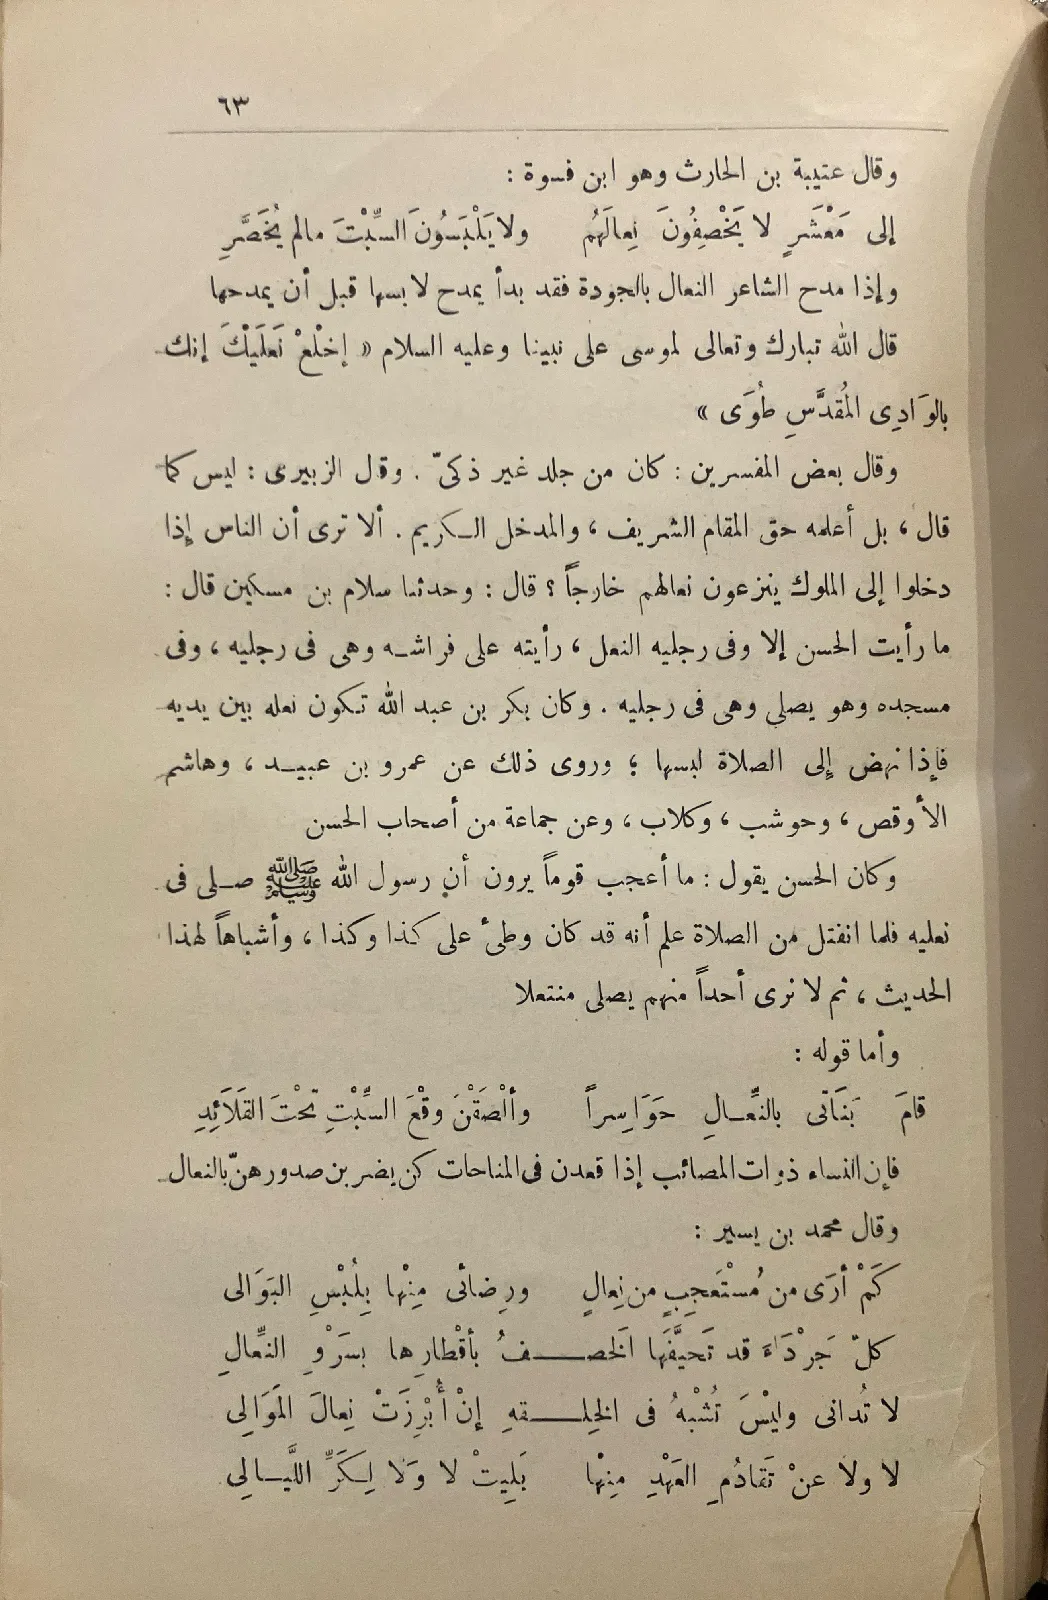 ٦٣
وقال عتيبة بن الحارث وهو ابن فسوة :
إلى مَعْشَرٍ لا يَخْصِفُونَ نِعالَهُم ولا يَلْبَسُونَ السِّبْتَ مالم يُخَصَّرِ
وإذا مدح الشاعر النعال بالجودة فقد بدأ يمدح لابسها قبل أن يمدحها
قال الله تبارك وتعالى لموسى على نبينا وعليه السلام « إخْلَعْ نَعلَيْكَ إنك
بالوَادِى المُقدَّسِ طُوَى »
وقال بعض المفسرين : كان من جلد غير ذكىّ . وقال الزبيرى : ليس كما
قال ، بل أعلمه حق المقام الشريف ، والمدخل الكريم . ألا ترى أن الناس إذا
دخلوا إلى الملوك ينزعون نعالهم خارجاً ؟ قال : وحدثنا سلام بن مسكين قال :
ما رأيت الحسن إلا وفى رجليه النعل ، رأيته على فراشه وهى فى رجليه ، وفى
مسجده وهو يصلى وهى فى رجليه . وكان بكر بن عبد الله تكون نعله بين يديه
فإذا نهض إلى الصلاة لبسها ؛ وروى ذلك عن عمرو بن عبيد ، وهاشم
الأوقص ، وحوشب ، وكلاب ، وعن جماعة من أصحاب الحسن
وكان الحسن يقول : ما أعجب قوماً يرون أن رسول الله ﷺ صلى فى
نعليه فلما انفتل من الصلاة علم أنه قد كان وطئ على كذا وكذا ، وأشباهاً لهذا
الحديث ، ثم لا نرى أحداً منهم يصلى منتعلا
وأما قوله :
قامَ بَنَاتى بالنِّعالِ حَوَاسِراً وألْصَقْنَ وقْعَ السِّبْتِ تحْتَ القَلَائِدِ
فإن النساء ذوات المصائب إذا قعدن فى المناحات كن يضربن صدورهنّ بالنعال
وقال محمد بن يسير :
كَمْ أرَى من مُسْتَعجِبٍ من نِعالِ ورِضائى مِنْها بِلُبْسِ البَوَالى
كلّ جَرْدَاءَ قد تَحيَّفَها الخصفُ بأقْطارِها بسَرْوِ النِّعالِ
لا تُدانى وليْسَ تُشْبهُ فى الخِلقهِ إنْ أُبْرِزَتْ نِعالَ المَوَالِى
لا ولا عنْ تَقادُمِ العَهْدِ مِنْها بَلِيتْ لا وَلا لِكَرِّ اللَّيالِى